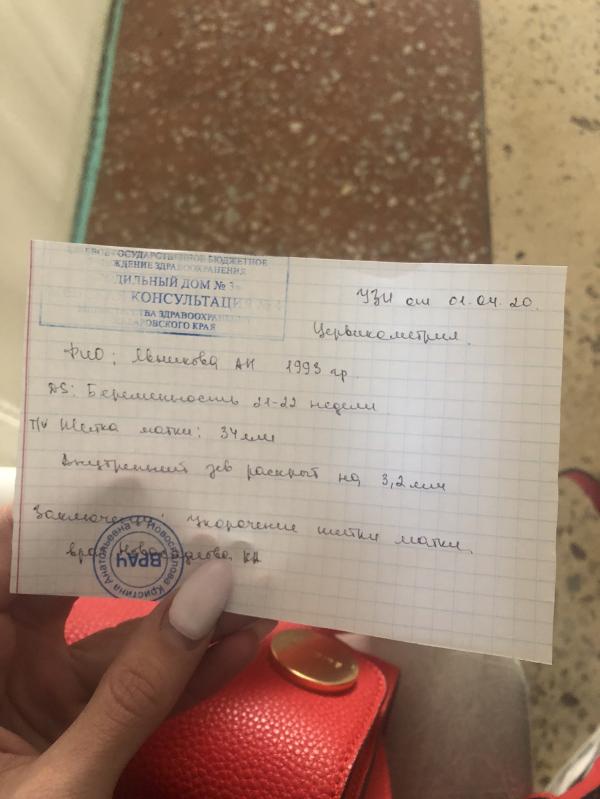 ГОСУДАРСТВЕННОЕ БЮДЖЕТНОЕ
ЖДЕНИЕ ЗДРАВООХРАНЕНИЯ
ДИЛЬНЫЙ ДОМ № 3
КОНСУЛЬТАЦИЯ
ЗДРАВООХРАНЕНИЯ
КРАЯ
УЗИ от 01.04.20.
Цервикометрия.
ФИО: АН 1993 гр.
DS: Беременность 21-22 недели
T/v Шейка матки: 34 мм
Внутренний зев раскрыт на 3,2 мм
Заключение: укорочение шейки матки.
врач КА
Кристина Анатольевна
ВРАЧ